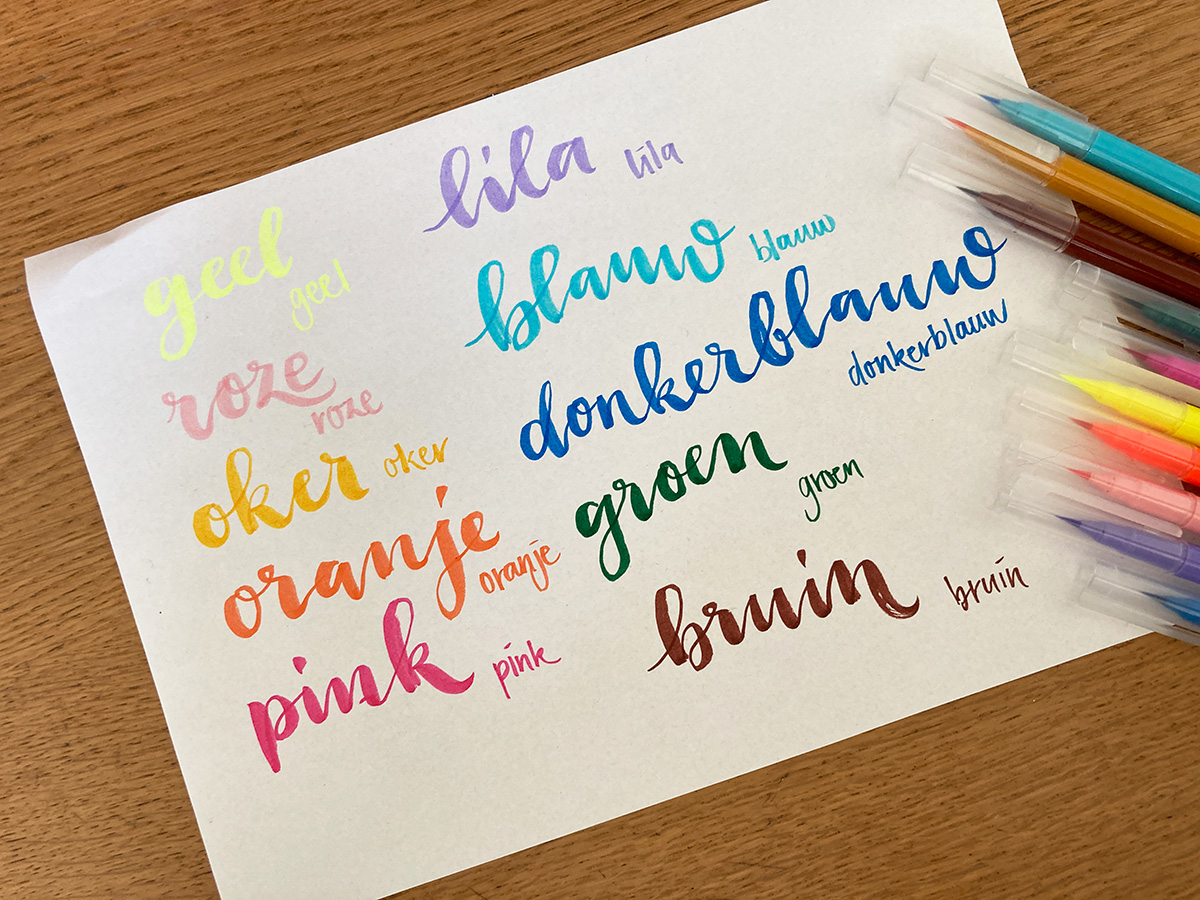 geel geel
roze roze
oker oker
oranje oranje
pink pink
lila lila
blauw blauw
donkerblauw
donkerblauw
groen groen
bruin bruin